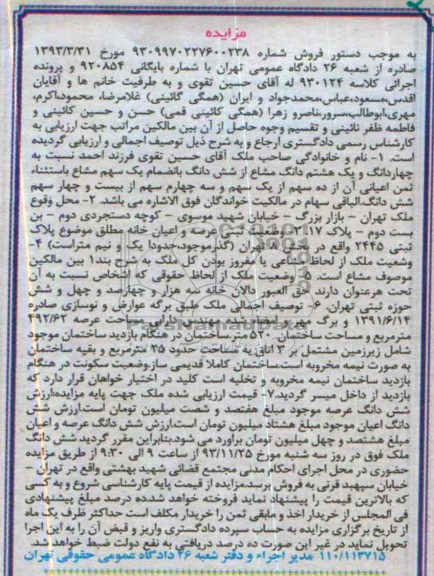 مزایده
به موجب دستور فروش شماره ۹۳۰۹۹۷۰۲۲۷۶۰۰۲۳۸ مورخ ۱۳۹۳/۳/۳۱
صادره از شعبه ۲۶ دادگاه عمومی تهران با شماره بایگانی ۹۲۰۸۵۴ و پرونده
اجرائی کلاسه ۹۳۰۱۲۴ له آقای حسین تقوی و به طرفیت خانم ها و آقایان
اقدس،مسعود،عباس،محمدجواد و ایران (همگی گائینی) غلامرضا، محمود،اکرم،
مهری،ابوطالب،سرور،ناصرو زهرا (همگی کائینی قمی) حسن و حسین کائینی و
فاطمه ظفر نائینی و تقسیم وجوه حاصل از آن بین مالکین مراتب جهت ارزیابی به
کارشناس رسمی دادگستری ارجاع و به شرح ذیل توصیف اجمالی و ارزیابی گردیده
است. ۱- نام و خانوادگی صاحب ملک آقای حسین تقوی فرزند احمد نسبت به
چهاردانگ و یک هشتم دانگ مشاع از شش دانگ بانضمام یک سهم مشاع باستثناء
ثمن اعیانی آن از ده سهم از یک سهم و سه چهارم سهم از بیست و چهار سهم
شش دانگ،الباقی سهام در مالکیت خواندگان فوق الاشاره می باشد. ۲- محل وقوع
ملک تهران – بازار بزرگ – خیابان شهید موسوی – کوچه دستجردی دوم – بن
بست دوم – پلاک ۱۷ ۳- وضعیت ثبتی عرصه و اعیان خانه مطلق موضوع پلاک
ثبتی ۲۴۴۵ واقع در بخش تهران (گذرموجود،حدودا یک و نیم متراست) ۴-
وضعیت ملک از لحاظ مشاعی یا مفروز بودن کل ملک به شرح بند۱ بین مالکین
موصوف مشاع است. ۵- وضعیت ملک از لحاظ حقوقی که اشخاص نسبت به آن
تحت هرعنوان دارند حق العبور دالان خانه سه هزار و چهارصد و چهل و شش
حوزه ثبتی تهران. ۶- توصیف اجمالی ملک طبق برگه عوارض و نوسازی صادره
۱۳۹۱/۶/۱۴ و برگ مهر و امضاء شده پیوست دارای مساحت عرصه ۴۹۲/۶۳
مترمربع و مساحت ساختمان ۵۲۰ متر،ساختمان در هنگام بازدید ساختمان موجود
شامل زیرزمین مشتمل بر ۳ اتاق به مساحت حدود ۳۵ مترمربع و بقیه ساختمان
به صورت نیمه مخروبه است،ساختمان کاملا قدیمی ساز.وضعیت سکونت در هنگام
بازدید ساختمان نیمه مخروبه و تخلیه است کلید در اختیار خواهان قرار دارد که
بازدید از داخل میسر گردید.۷- قیمت ارزیابی شده ملک جهت پایه مزایده:ارزش
شش دانگ عرصه موجود مبلغ هفتصد و شصت میلیون تومان است.ارزش شش
دانگ اعیان موجود مبلغ هشتاد میلیون تومان است.ارزش شش دانگ عرصه و اعیان
مبلغ هشتصد و چهل میلیون تومان برآورد می شود.بنابراین مقرر گردید شش دانگ
ملک فوق در روز سه شنبه مورخ ۹۳/۱۱/۲۵ از ساعت ۹ الی ۹:۳۰ از طریق مزایده
حضوری در محل اجرای احکام مدنی مجتمع قضائی شهید بهشتی واقع در تهران –
خیابان سپهبد قرنی به فروش برسد.مزایده از قیمت پایه کارشناسی شروع و به کسی
که بالاترین قیمت را پیشنهاد نماید فروخته خواهد شد.ده درصد مبلغ پیشنهادی
فی المجلس از خریدار اخذ و مابقی ثمن را خریدار مکلف است حداکثر ظرف یک ماه
از تاریخ برگزاری مزایده به حساب سپرده دادگستری واریز و قبض آن را به این اجرا
تحویل نماید در غیر این صورت ده درصد دریافتی به نفع دولت ضبط خواهد شد.
۱۱۰/۱۱۳۷۱۵ مدیر اجراء و دفتر شعبه ۲۶ دادگاه عمومی حقوقی تهران